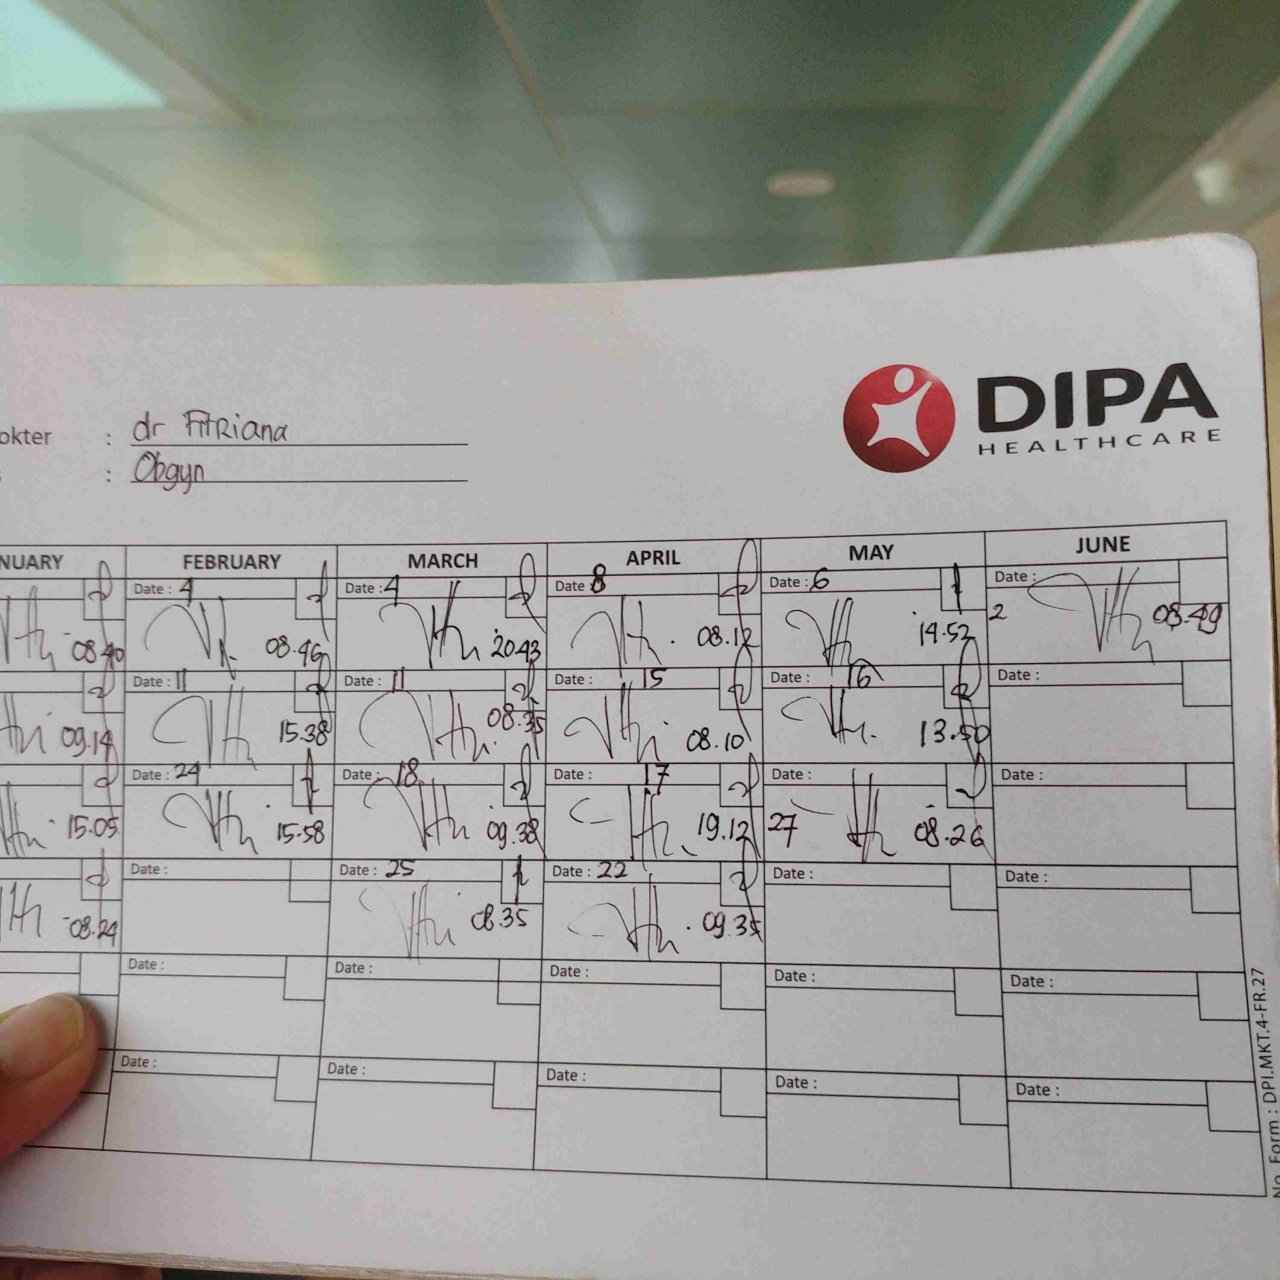 DIPA
HEALTHCARE
okter : dr Fitriana
: Obgyn
NUARY FEBRUARY MARCH APRIL MAY JUNE
Date : 4 Date : 4 Date 8 Date : 6 Date : 2
08.40 08.46 20.43 08.12 14.52 08.49
Date : 11 Date : 11 Date : 15 Date : 16 Date :
09.14 15.38 08.35 08.10 13.50
Date : 24 Date : 18 Date : 17 Date : 27 Date :
15.05 15.58 09.38 19.12 08.26
Date : Date : 25 Date : 22 Date : Date :
08.24 08.35 09.35
Date : Date : Date : Date : Date :
Date : Date : Date : Date : Date :
No. Form : DPI.MKT.4-FR.27